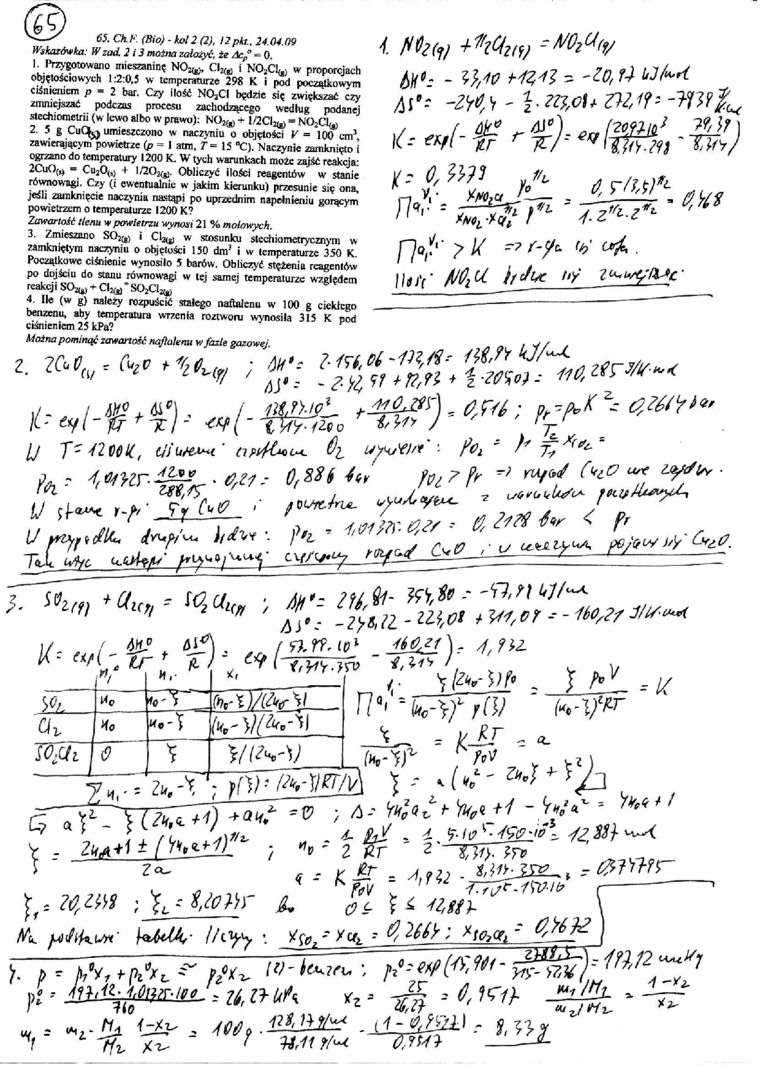 65
65. Ch.F. (Bio) - kol 2 (2), 12 pkt., 24.04.09
Wskazówka: W zad. 2 i 3 można założyć, że Δcₚ° = 0.
1. Przygotowano mieszaninę NO2(g), Cl2(g) i NO2Cl(g) w proporcjach
objętościowych 1:2:0,5 w temperaturze 298 K i pod początkowym
ciśnieniem p = 2 bar. Czy ilość NO2Cl będzie się zwiększać czy
zmniejszać podczas procesu zachodzącego według podanej
stechiometrii (w lewo albo w prawo): NO2(g) + 1/2Cl2(g) = NO2Cl(g)
2. 5 g CuO(s) umieszczono w naczyniu o objętości V = 100 cm³,
zawierającym powietrze (p = 1 atm, T = 15 °C). Naczynie zamknięto i
ogrzano do temperatury 1200 K. W tych warunkach może zajść reakcja:
2CuO(s) = Cu2O(s) + 1/2O2(g). Obliczyć ilości reagentów w stanie
równowagi. Czy (i ewentualnie w jakim kierunku) przesunie się ona,
jeśli zamknięcie naczynia nastąpi po uprzednim napełnieniu gorącym
powietrzem o temperaturze 1200 K?
Zawartość tlenu w powietrzu wynosi 21 % molowych.
3. Zmieszano SO2(g) i Cl2(g) w stosunku stechiometrycznym w
zamkniętym naczyniu o objętości 150 dm³ i w temperaturze 350 K.
Początkowe ciśnienie wynosiło 5 barów. Obliczyć stężenia reagentów
po dojściu do stanu równowagi w tej samej temperaturze względem
reakcji SO2(g) + Cl2(g) = SO2Cl2(g)
4. Ile (w g) należy rozpuścić stałego naftalenu w 100 g ciekłego
benzenu, aby temperatura wrzenia roztworu wynosiła 315 K pod
ciśnieniem 25 kPa?
Można pominąć zawartość naftalenu w fazie gazowej.
1. NO2(g) + 1/2Cl2(g) = NO2Cl(g)
ΔH° = -33,10 + 12,13 = -20,97 kJ/mol
ΔS° = -240,4 - 1/2·223,08 + 272,19 = -79,39 J/K·mol
K = exp(-ΔH°/RT + ΔS°/R) = exp(20,97·10³/8,314·298 - 79,39/8,314)
K = 0,3379
Πaᵢ^νᵢ = xNO2Cl/(xNO2·xCl2^1/2) · p0^1/2/p^1/2 = 0,5(3,5)^1/2/(1·2^1/2·2^1/2) = 0,468
Πaᵢ^νᵢ > K => r-cja się cofa.
Ilość NO2Cl będzie się zmniejszać.
2. 2CuO(s) = Cu2O + 1/2O2(g) ; ΔH° = 2·156,06 - 173,18 = 138,94 kJ/mol
ΔS° = -2·42,59 + 92,93 + 1/2·205,07 = 110,285 J/K·mol
K = exp(-ΔH°/RT + ΔS°/R) = exp(-138,94·10³/8,314·1200 + 110,285/8,314) = 0,516 ; pr = p0K² = 0,2664 bar
W T = 1200K, ciśnienie cząstkowe O2 wyniesie: pO2 = p1 T2/T1 xO2 =
pO2 = 1,01325·1200/288,15·0,21 = 0,886 bar pO2 > pr => rozpad Cu2O nie zajdzie.
W stanie r-gi 5g CuO i powietrze wynikające z warunków początkowych
W przypadku drugim będzie: pO2 = 1,01325·0,21 = 0,2128 bar < pr
Tak więc nastąpi przynajmniej częściowy rozpad CuO i w naczyniu pojawi się Cu2O.
3. SO2(g) + Cl2(g) = SO2Cl2(g) ; ΔH° = 296,81 - 354,80 = -57,99 kJ/mol
ΔS° = -248,22 - 223,08 + 311,09 = -160,21 J/K·mol
K = exp(-ΔH°/RT + ΔS°/R) = exp(57,99·10³/8,314·350 - 160,21/8,314) = 1,932
nᵢ° nᵢ xᵢ
SO2 n0 n0-ξ (n0-ξ)/(2n0-ξ)
Cl2 n0 n0-ξ (n0-ξ)/(2n0-ξ)
SO2Cl2 0 ξ ξ/(2n0-ξ)
Πaᵢ^νᵢ = ξ(2n0-ξ)p0/((n0-ξ)² p(ξ)) = ξ p0V/((n0-ξ)²RT) = K
ξ/(n0-ξ)² = K RT/p0V = a
Σnᵢ = 2n0-ξ ; p(ξ) = (2n0-ξ)RT/V ξ = a(n0² - 2n0ξ + ξ²)
aξ² - ξ(2n0a+1) + an0² = 0 ; Δ = 4n0²a² + 4n0a + 1 - 4n0²a² = 4n0a + 1
ξ = (2n0a+1 ± (4n0a+1)^1/2)/2a ; n0 = 1/2 p1V/RT = 1/2·5·10⁵·150·10⁻³/8,314·350 = 12,887 mol
a = K RT/p0V = 1,932·8,314·350/1·10⁵·150·10⁻³ = 0,374795
ξ1 = 20,2348 ; ξ2 = 8,20745 bo 0 ≤ ξ ≤ 12,887
Na podstawie tabelki liczymy: xSO2 = xCl2 = 0,2664 ; xSO2Cl2 = 0,4672
4. p = p1°x1 + p2°x2 ≅ p2°x2 (2)-benzen ; p2° = exp(15,901 - 2788,5/315-52,36) = 197,12 mmHg
p2° = 197,12·1,01325·100/760 = 26,27 kPa x2 = 25/26,27 = 0,9517 (m1/M1)/(m2/M2) = (1-x2)/x2
m1 = m2·M1/M2·(1-x2)/x2 = 100g·128,17 g/mol/78,11 g/mol·(1-0,9517)/0,9517 = 8,33g